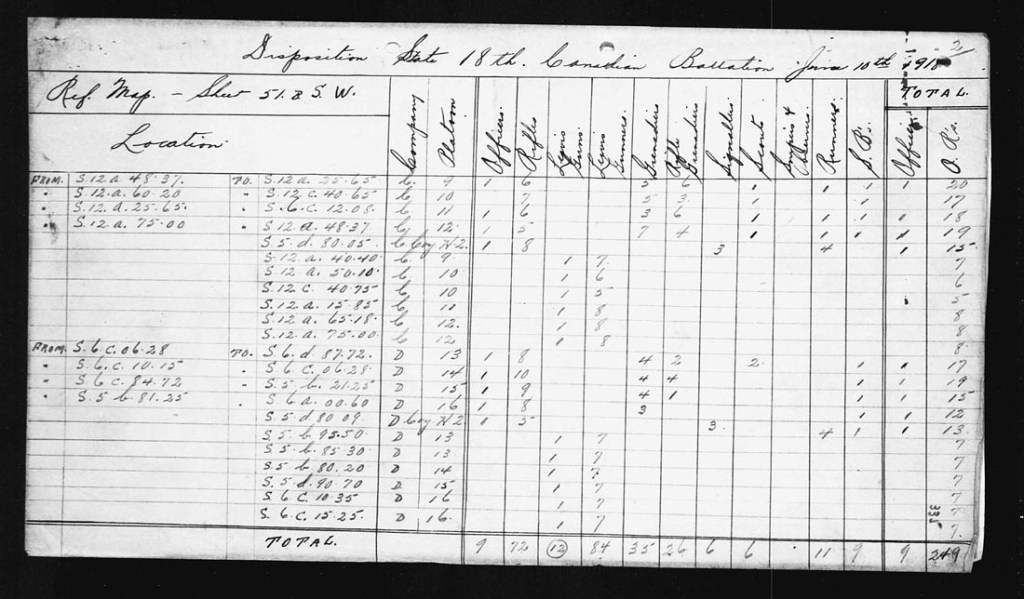 2
Disposition State 18th. Canadian Battalion June 10th 1918
Ref. Map. - Sheet 51.B S.W. TOTAL.
Location. Company Platoon Officers Rifles Lewis Guns. Lewis Gunners. Grenadiers Rifle Grenadiers Signallers Scouts Snipers & Runners. S.B's. Officers O.R's.
FROM. S.12.a.48.37. TO. S.12.a.25.65 C 9 1 6 5 6 1 1 1 1 20
" S.12.a.60.20 " S.12.c.40.65 C 10 7 5 3 1 1 17
" S.12.a.25.65. " S.6.c.12.08. C 11 1 6 3 6 1 1 1 1 18
" S.12.a.75.00 " S.12.d.48.37. C 12. 1 5 7 4 1 1 1 1 19
S.5.d.80.05. C Coy H.2. 1 8 3 4 1 15
S.12.a.40.40. C 9. 1 7 7
S.12.a.50.10. C 10 1 6 6
S.12.c.40.75 C 10 1 5 5
S.12.a.15.85 C 11 1 8 8
S.12.a.65.18. C 12. 1 8 8
S.12.a.75.00. C 12 1 8 8
FROM. S.6.c.06.28 TO. S.6.d.87.72. D 13 1 8 4 2 2 1 1 17
" S.6.c.10.15 " S.6.c.06.28 D 14 1 10 4 4 1 1 19
" S.6.c.84.72 " S.5.b.21.25 D 15 1 9 4 1 1 1 15
" S.5.b.81.25 " S.6.a.00.60 D 16 1 8 3 1 1 12
S.5.d.80.09 D Coy H.2 1 5 3 4 1 1 13
S.5.b.95.50 D 13 1 7 7
S.5.b.85.30 D 13 1 7 7
S.5.b.80.20 D 14 1 7 7
S.5.d.90.70 D 15 1 7 7
S.6.c.10.35 D 16 1 7 7
S.6.c.15.25. D 16. 1 7 7.
331
TOTAL. 9 72 12 84 35 26 6 6 . 11 9 9 249